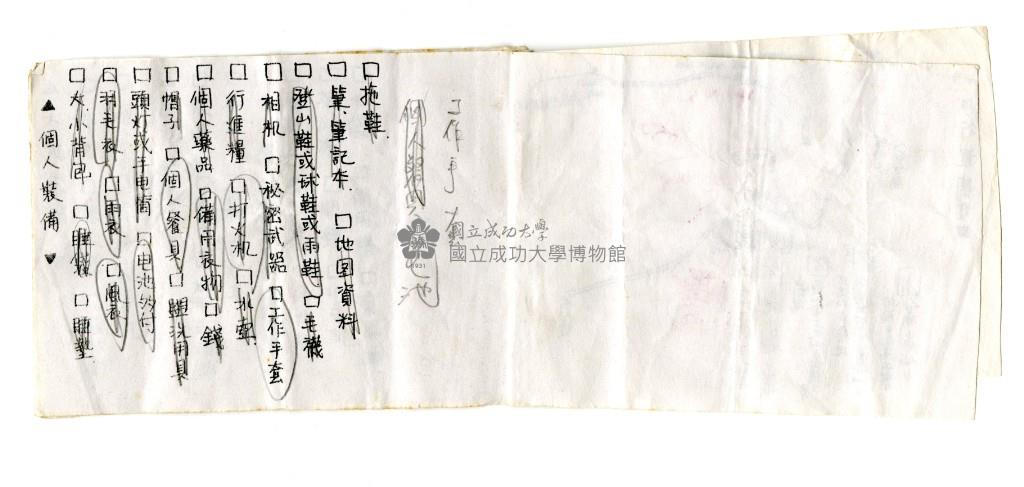 ▲ 個人裝備 ▼
□大.小背包 □睡袋 □睡墊
□羽毛衣 □雨衣 □風衣
□頭灯或手电筒 □电池
□帽子 □個人餐具 □盥洗用具
□個人藥品 □備用衣物 □錢
□行進糧 □打火机 □水壺
□相机 □秘密武器 □工作手套
□登山鞋或球鞋或雨鞋 □毛襪
□筆.筆記本. □地图資料
□拖鞋.
個人餐具 电池
工作手套
國立成功大學
國立成功大學博物館
1931